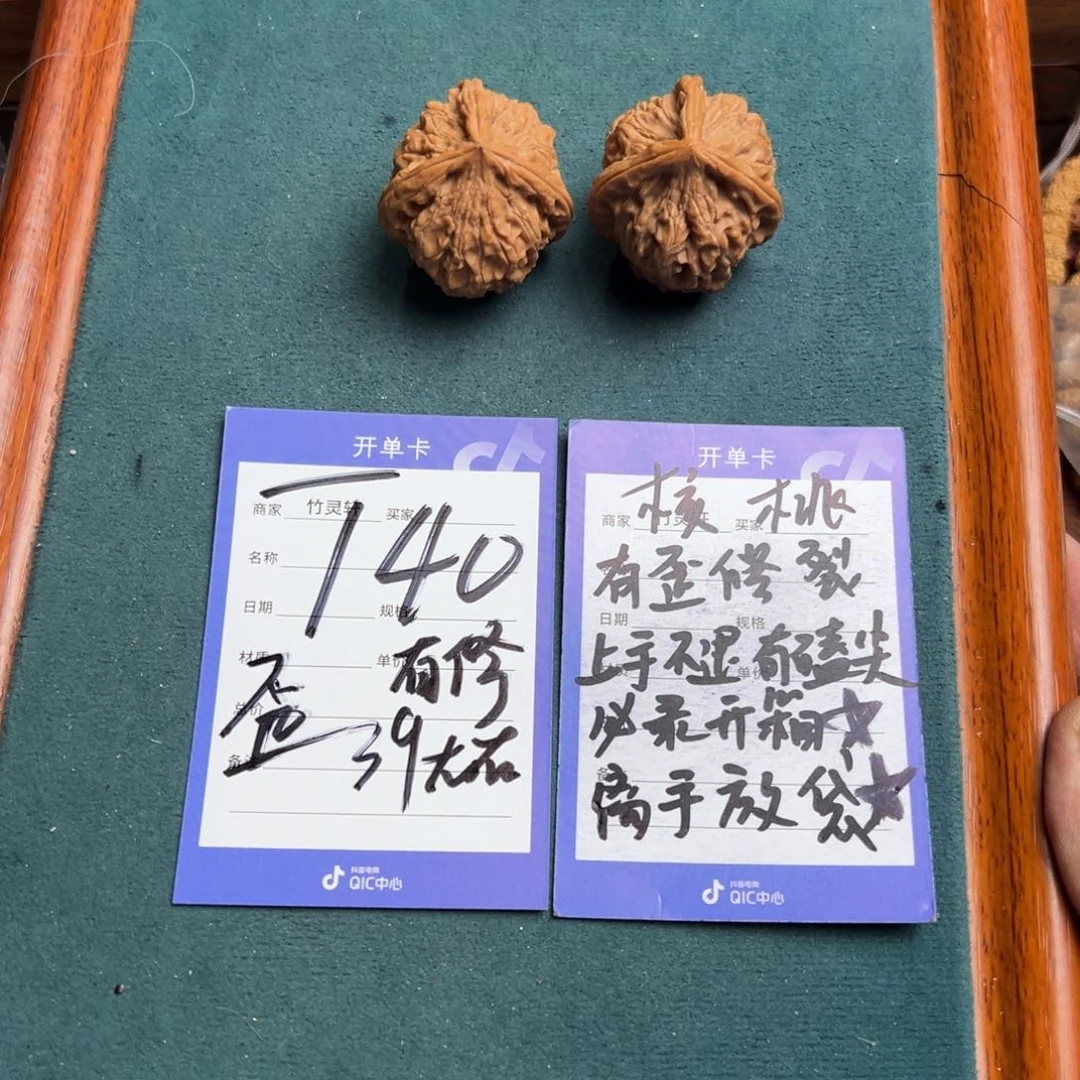 开单卡
商家 竹灵轩 买家
140
名称
日期 规格
材质 单价 有修
总价
歪 39大右
备注
抖音电商
QIC中心
开单卡
核桃
商家 竹灵轩 买家
有歪修裂
日期 规格
上手不退有磕尖
单价
必录开箱☆
离手放袋★
抖音电商
QIC中心